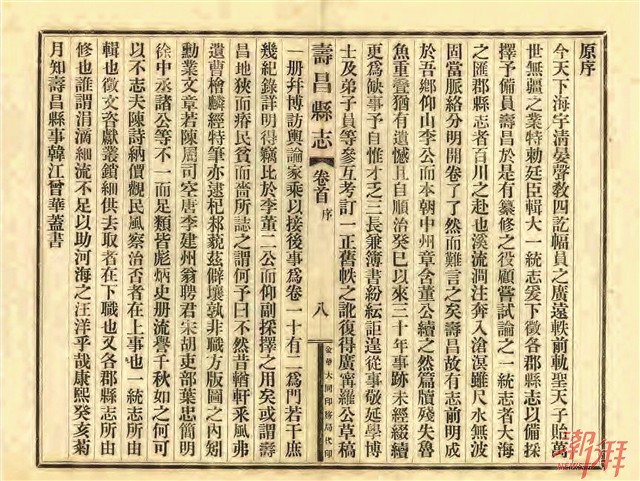 原序
今天下海宇清晏聲敎四訖幅員之廣遠軼前軌聖天子貽萬
世無疆之業特勅廷臣輯大一統志爰下徵各郡縣志以備採
擇予備員壽昌於是有纂修之役顧嘗試論之一統志者大海
之匯郡縣志者百川之赴也溪流澗注奔入滄溟雖尺水無波
固當脈絡分明開卷了了然而難言之矣壽昌故有志前明成
於吾鄉仰山李公而本朝中州章含董公續之然篇牘殘失魯
魚重疊猶有遺憾且自順治癸巳以來三十年事跡未經綴續
更爲缺事予自惟才乏三長兼簿書紛紜詎遑從事敬延學博
士及弟子員等參互考訂一正舊帙之訛復得廣甯羅公草稿
壽昌縣志 卷首 序 八 金華大同印務局代印
一册幷博訪輿論家乘以接後事爲卷一十有二爲門若干庶
幾紀錄詳明得竊比於李董二公而仰副採擇之用矣或謂壽
昌地狹而瘠民貧而嗇所誌之謂何予曰不然昔輶軒釆風弗
遺曹檜麟經特筆亦逮杞邾藐茲僻壤孰非職方版圖之內矧
勳業文章若陳周司空唐李建州翁聘君宋胡吏部葉忠簡明
徐中丞諸公等不一而足類皆彪炳史册流譽千秋如之何可
以不志夫陳詩納價觀民風察治否者在上事也一統志所由
輯也徵文咨獻叢鎖細供去取者在下職也又各郡縣志所由
修也誰謂涓滴細流不足以助河海之汪洋乎哉康熙癸亥菊
月知壽昌縣事韓江曾華蓋書